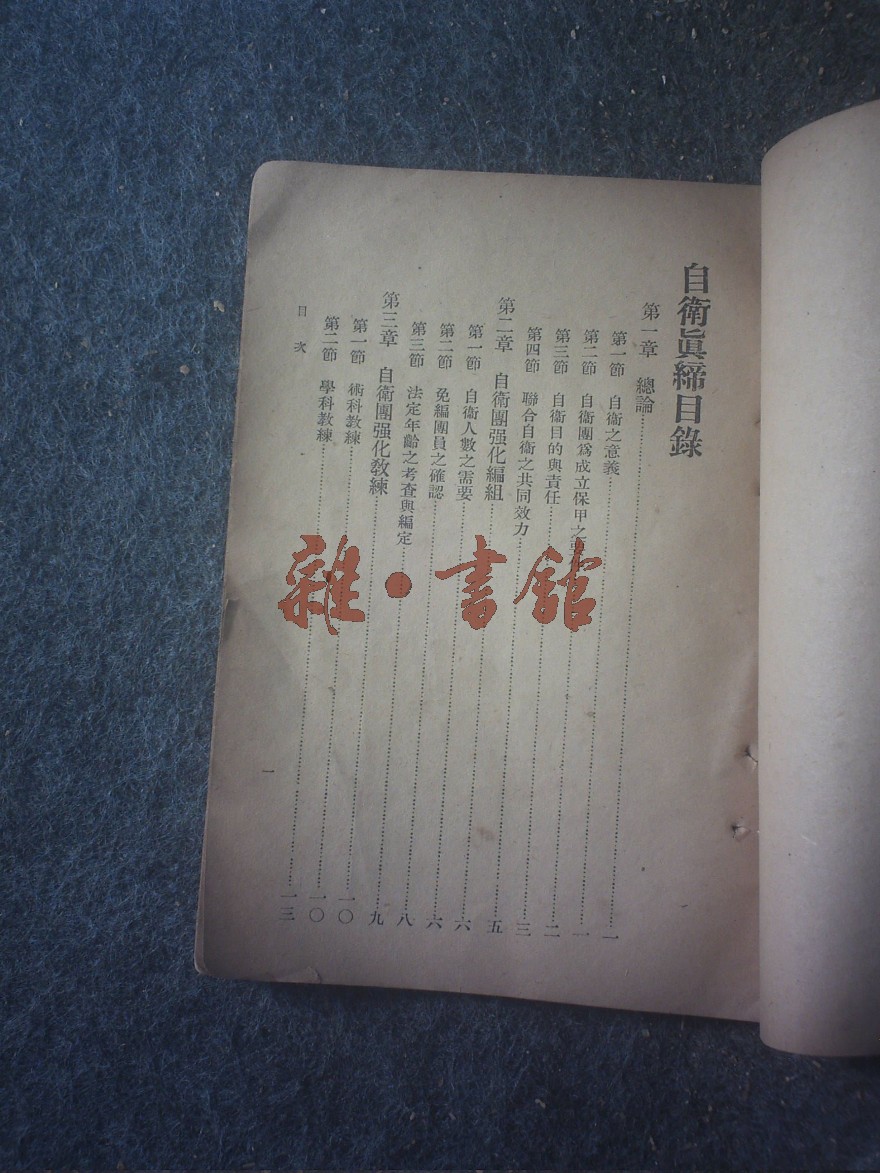 自衛眞締目錄
第一章 總論……一
第一節 自衛之意義……一
第二節 自衛團爲成立保甲之要……二
第三節 自衛目的與責任……三
第四節 聯合自衛之共同效力……五
第二章 自衛團强化編組……六
第一節 自衛人數之需要……六
第二節 免編團員之確認……八
第三節 法定年齡之考查與編定……九
第三章 自衛團强化敎練……一〇
第一節 術科敎練……一〇
第二節 學科敎練……一三
目次
一
雜·書館